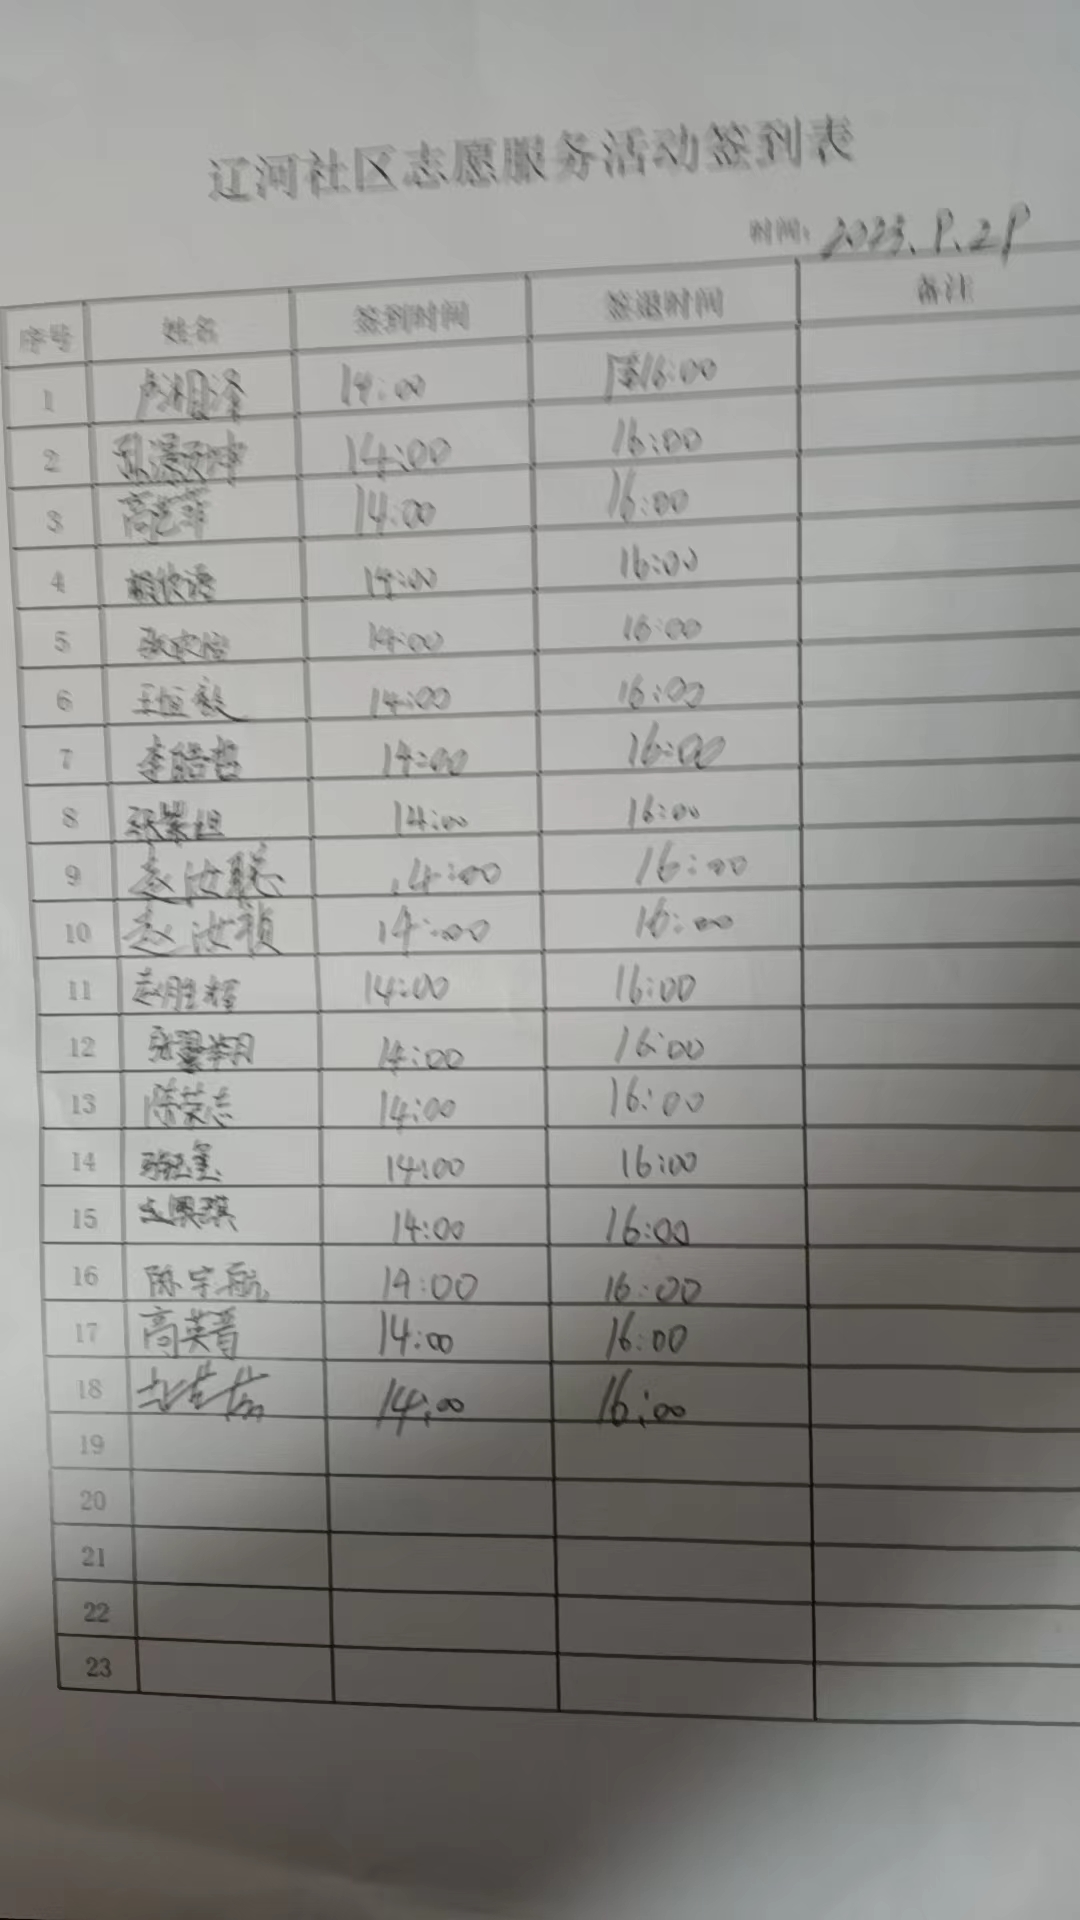 辽河社区志愿服务活动签到表
时间: 2023.9.29
序号 姓名 签到时间 签退时间 备注
1 卢湘泽 14:00 16:00
2 14:00 16:00
3 高艺菲 14:00 16:00
4 14:00 16:00
5 14:00 16:00
6 王恒毅 14:00 16:00
7 李皓哲 14:00 16:00
8 14:00 16:00
9 赵汝聪 14:00 16:00
10 赵汝祯 14:00 16:00
11 赵胜辉 14:00 16:00
12 14:00 16:00
13 陈英志 14:00 16:00
14 14:00 16:00
15 14:00 16:00
16 陈宇航 14:00 16:00
17 高英晋 14:00 16:00
18 14:00 16:00
19
20
21
22
23